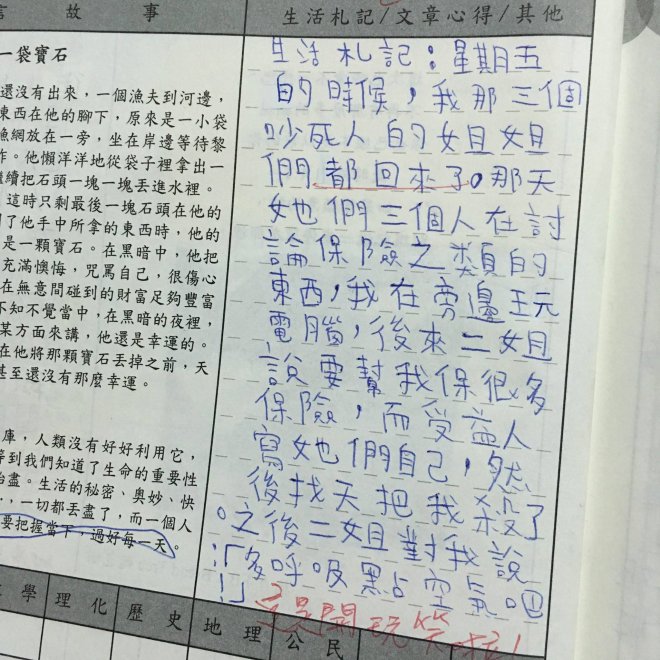 言 故 事
生活札記/文章心得/其他
一袋寶石
還沒有出來，一個漁夫到河邊，
東西在他的腳下，原來是一小袋
漁網放在一旁，坐在岸邊等待黎
作。他懶洋洋地從袋子裡拿出一
繼續把石頭一塊一塊丟進水裡。
這時只剩最後一塊石頭在他的
了他手中所拿的東西時，他的
是一顆寶石。在黑暗中，他把
充滿懊悔，咒罵自己，很傷心
在無意間碰到的財富足夠豐富
不知不覺當中，在黑暗的夜裡，
某方面來講，他還是幸運的。
在他將那顆寶石丟掉之前，天
甚至還沒有那麼幸運。
庫，人類沒有好好利用它，
等到我們知道了生命的重要性
殆盡。生活的秘密、奧妙、快
，一切都丟盡了，而一個人
要把握當下，過好每一天。
生活札記：星期五
的時候，我那三個
吵死人的姐姐
們都回來了。那天
她們三個人在討
論保險之類的
東西，我在旁邊玩
電腦，後來二姐
說要幫我保很多
保險，而受益人
寫她們自己，然
後找天把我殺了
。之後二姐對我說
：「多呼吸點空氣吧
！」
這是開玩笑啦！
學 理化 歷史 地理 公民